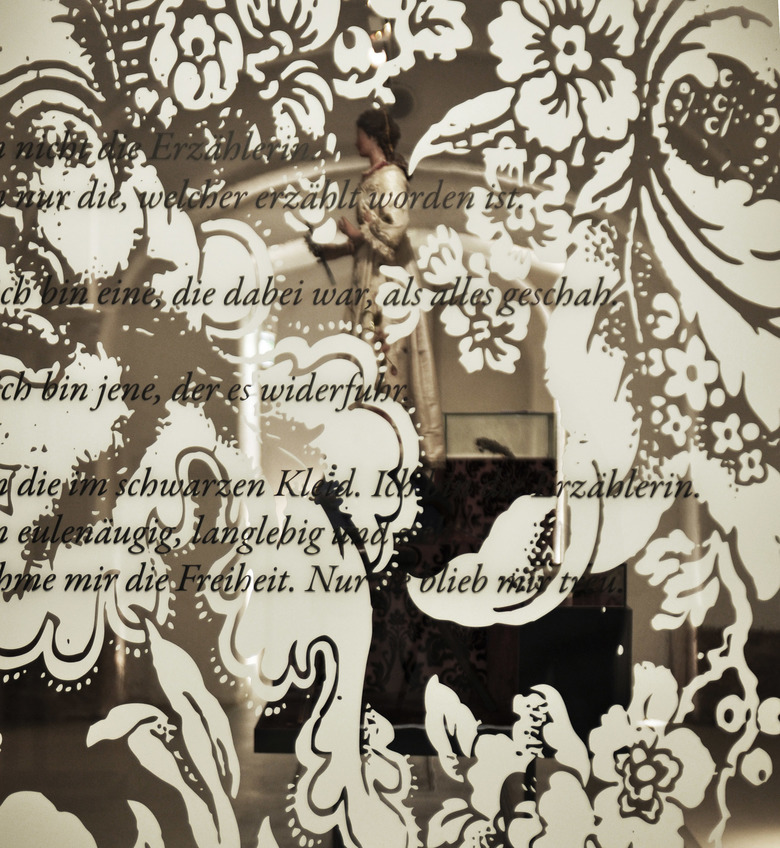 nicht die Erzählerin.
nur die, welcher erzählt worden ist.
ch bin eine, die dabei war, als alles geschah.
ch bin jene, der es widerfuhr.
die im schwarzen Kleid. Ich rzählerin.
eulenäugig, langlebig und
hme mir die Freiheit. Nur blieb mir treu.